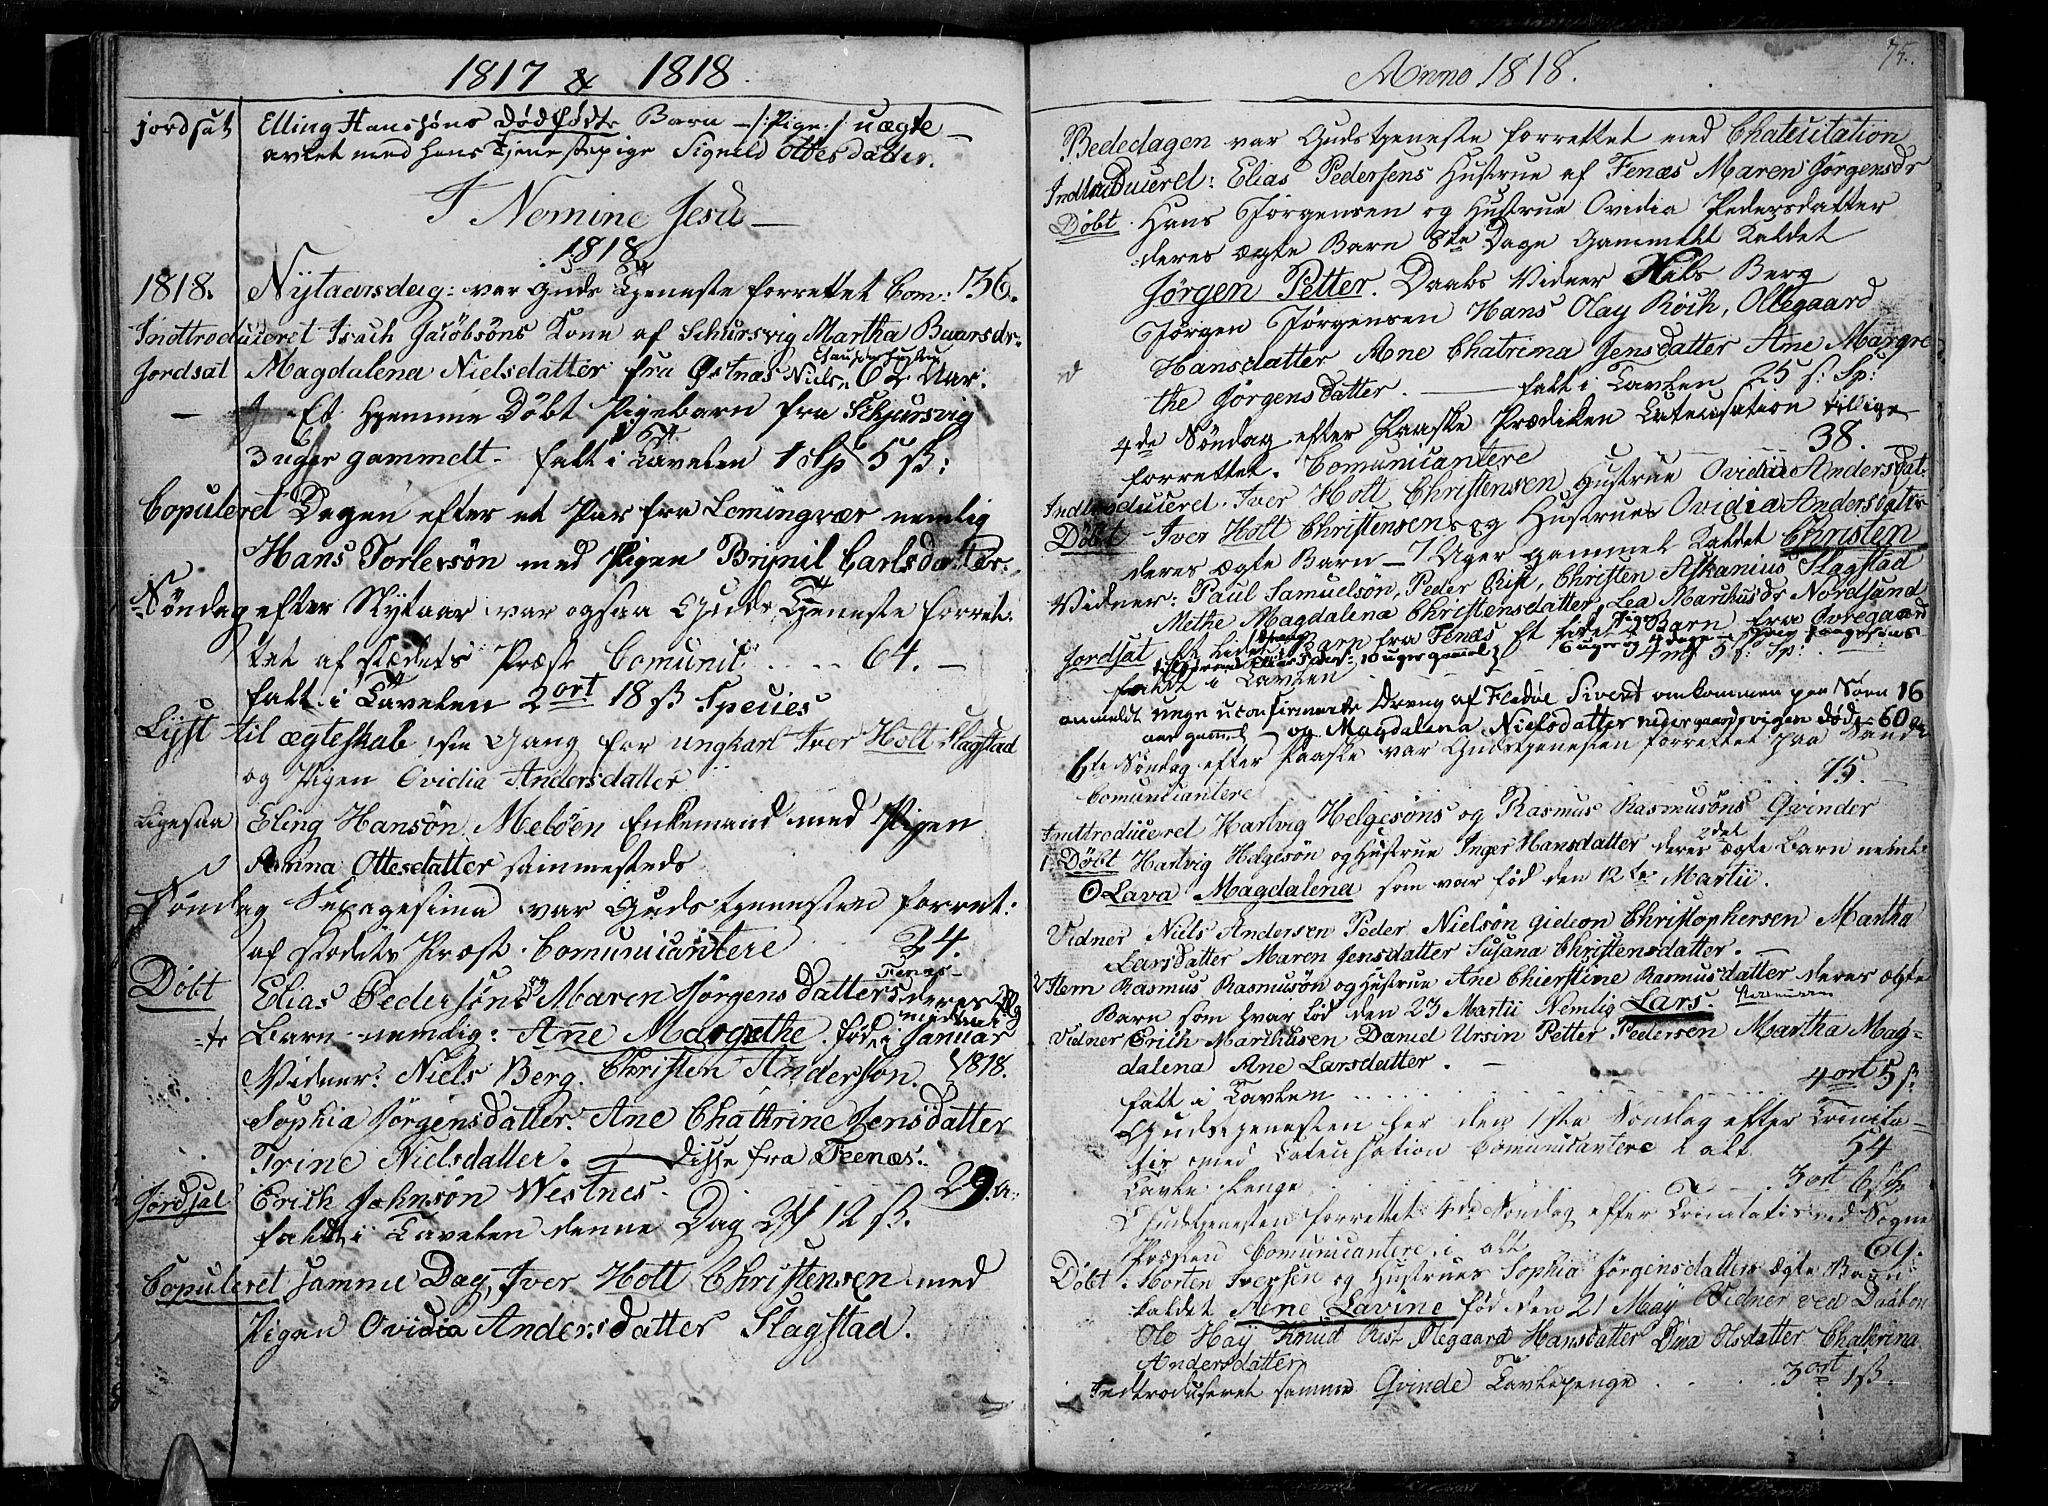 1817 & 1818.
jordsat Elling Hanssøns dødfødte Barn – /: Pige :/ uægte
avlet med hans Tjenestepige Signeld Ottesdatter.
I Nomine Jesu –
1818
1818. Nytaarsdag: var Guds Tjeneste forrettet Com: 136.
Indttroduceret Isach Jacobsöns Kone af Schursvig Martha Baarsdr
Jordsat Magdalena Nielsdatter fra Østnæs Niels 62 Aar.
– Et Hjemme Døbt Pigebarn fra Schjursvig
3 uger gammelt – falt i Tavelen 5 ß:
Copuleret Dagen efter et Par fra Lemingvær nemlig
Hans Torlersön med Pigen Brynil Carlsdatter.
Søndag efter Nytaar var ogsaa Guds Tjeneste forret:
tet af stædets Præst Comunic .. .. 64. –
falt i Tavelen 2 ort 18 ß Species
Lÿst til ægteskab 1ste Gang for ungkarl Iver Holt Slagstad
og Pigen Ovidia Andersdatter
Ligesaa Eling Hansön Meløen Enkemand med Pigen
Anna Ottesdatter sammesteds
Søndag Sepagesima var Guds tjenesten forret:
af stædets Præst. Comunicantere 24.
Døbt Elias Pedersøn og Maren Jørgens datters deres
Fenæs
Barn nemlig: Ane Margrethe. fød i Januar
Vidner: Niels Berg. Christen Anderson. 1818.
Sophia Jørgensdatter. Ane Chathrine Jensdatter
Trine Nielsdatter. – disse fra Feenæs.
Jordsat Erich Johnsön Westnes. 29. a.
faldt i Tavelen denne Dag 12 ß.
Copuleret samme Dag, Iver Holt Christensen med
Pigen Ovidia Andersdatter Slagstad.
Anno 1818.
75.
Bededagen var Gudstjeneste forrettet med Chateusitation
Indtroduceret: Elias Pedersens Hustrue af Fenæs Maren Jørgensdr
Døbt. Hans Jørgensen og Hustrue Ovidia Pedersdatter
deres ægte Barn 8te Dage Gammelt Kaldet
Jørgen Petter. Daabs Vidner Niels Berg
Jørgen Jørgensen Hans Olay Röch, Ollegaard
Hansdatter Ane Chatrina Jensdatter Ane Margre
the Jørgensdatter. – falt i Tavlen 25 ß: Sp:
4de Søndag efter Paaske Prædiken Cateusation tillige
forrettet. Comunicantere 38.
Indtroduceret. Iver Holt Christensen Hustrue Ovidia Andersdat.
Døbt Iver Holt Christensens og Hustrues Ovidia Andersdatter
deres ægte Barn – 7 Uger gammel Kaldet Christen
Vidner: Paul Samuelsön, Peder Rist, Christen Askanius Slagstad
Methe Magdalena Christensdatter, Lea Marthusdr Nordsand
Jordsat Et Lidet Barn fra Fenæs Et lidet Barn fra Øvregaard
10 uger gammel 6 uger og 4 dage
faldt i Tavlen 4 mk 5 ß: Sp:
anmeldt unge uconfirmerte Dreng af Sivert omkommen paa Søen 16
aar gammel – og Magdalena Nielsdatter nedergaardsvigen døde – 60 a
6te Søndag efter Paaske var Gudstjenesten forrettet paa Sand:
Comunicantere 75.
Inttroduceret Hartvig Helgesöns og Rasmus Rasmusöns Qvinder
1 Døbt Hartvig Helgesön og Hustrue Inger Hansdatter deres 2det ægte Barn neml:
Lava Magdalena som var fød den 12te Martii.
Vidner Niels Andersen Peder Nielsön Gideon Christophersen Martha
Larsdatter Maren Jensdatter Susana Christensdatter. –
2 Item Rasmus Rasmusön og Hustrue Ane Chierstine Rasmusdatter deres ægte
Barn som hvar fød den 23 Martii Nemlig Lars.
Vidner Erich Marthusen Daniel Ursin Petter Pedersen Martha Mag-
dalena Ane Larsdatter. –
falt i Tavlen ..... 4 ort 5 ß.
Gudstjenesten her den 1ste Søndag efter Trinita-
tis med Cateusation Comunicantere i alt 54
Tavle penge ..... 3 ort 6 ß Sp
Gudstjenesten forrettet 4de Søndag efter Trinitatis ved Sogne
Præsten Comunicantere i alt 69.
Døbt. Morten Iversen og Hustrues Sophia Jørgensdatters ægte Barn
kaldet Ane Lavine fød den 21 Maÿ Vidner ved Daaben
Ole Haÿ Knud Rist Olegaard Hansdatter Dina Olsdatter Chathrina
Andersdatter
Indtroduseret samme Qvinde Tavlepenge ..... 3 ort 1 ß.